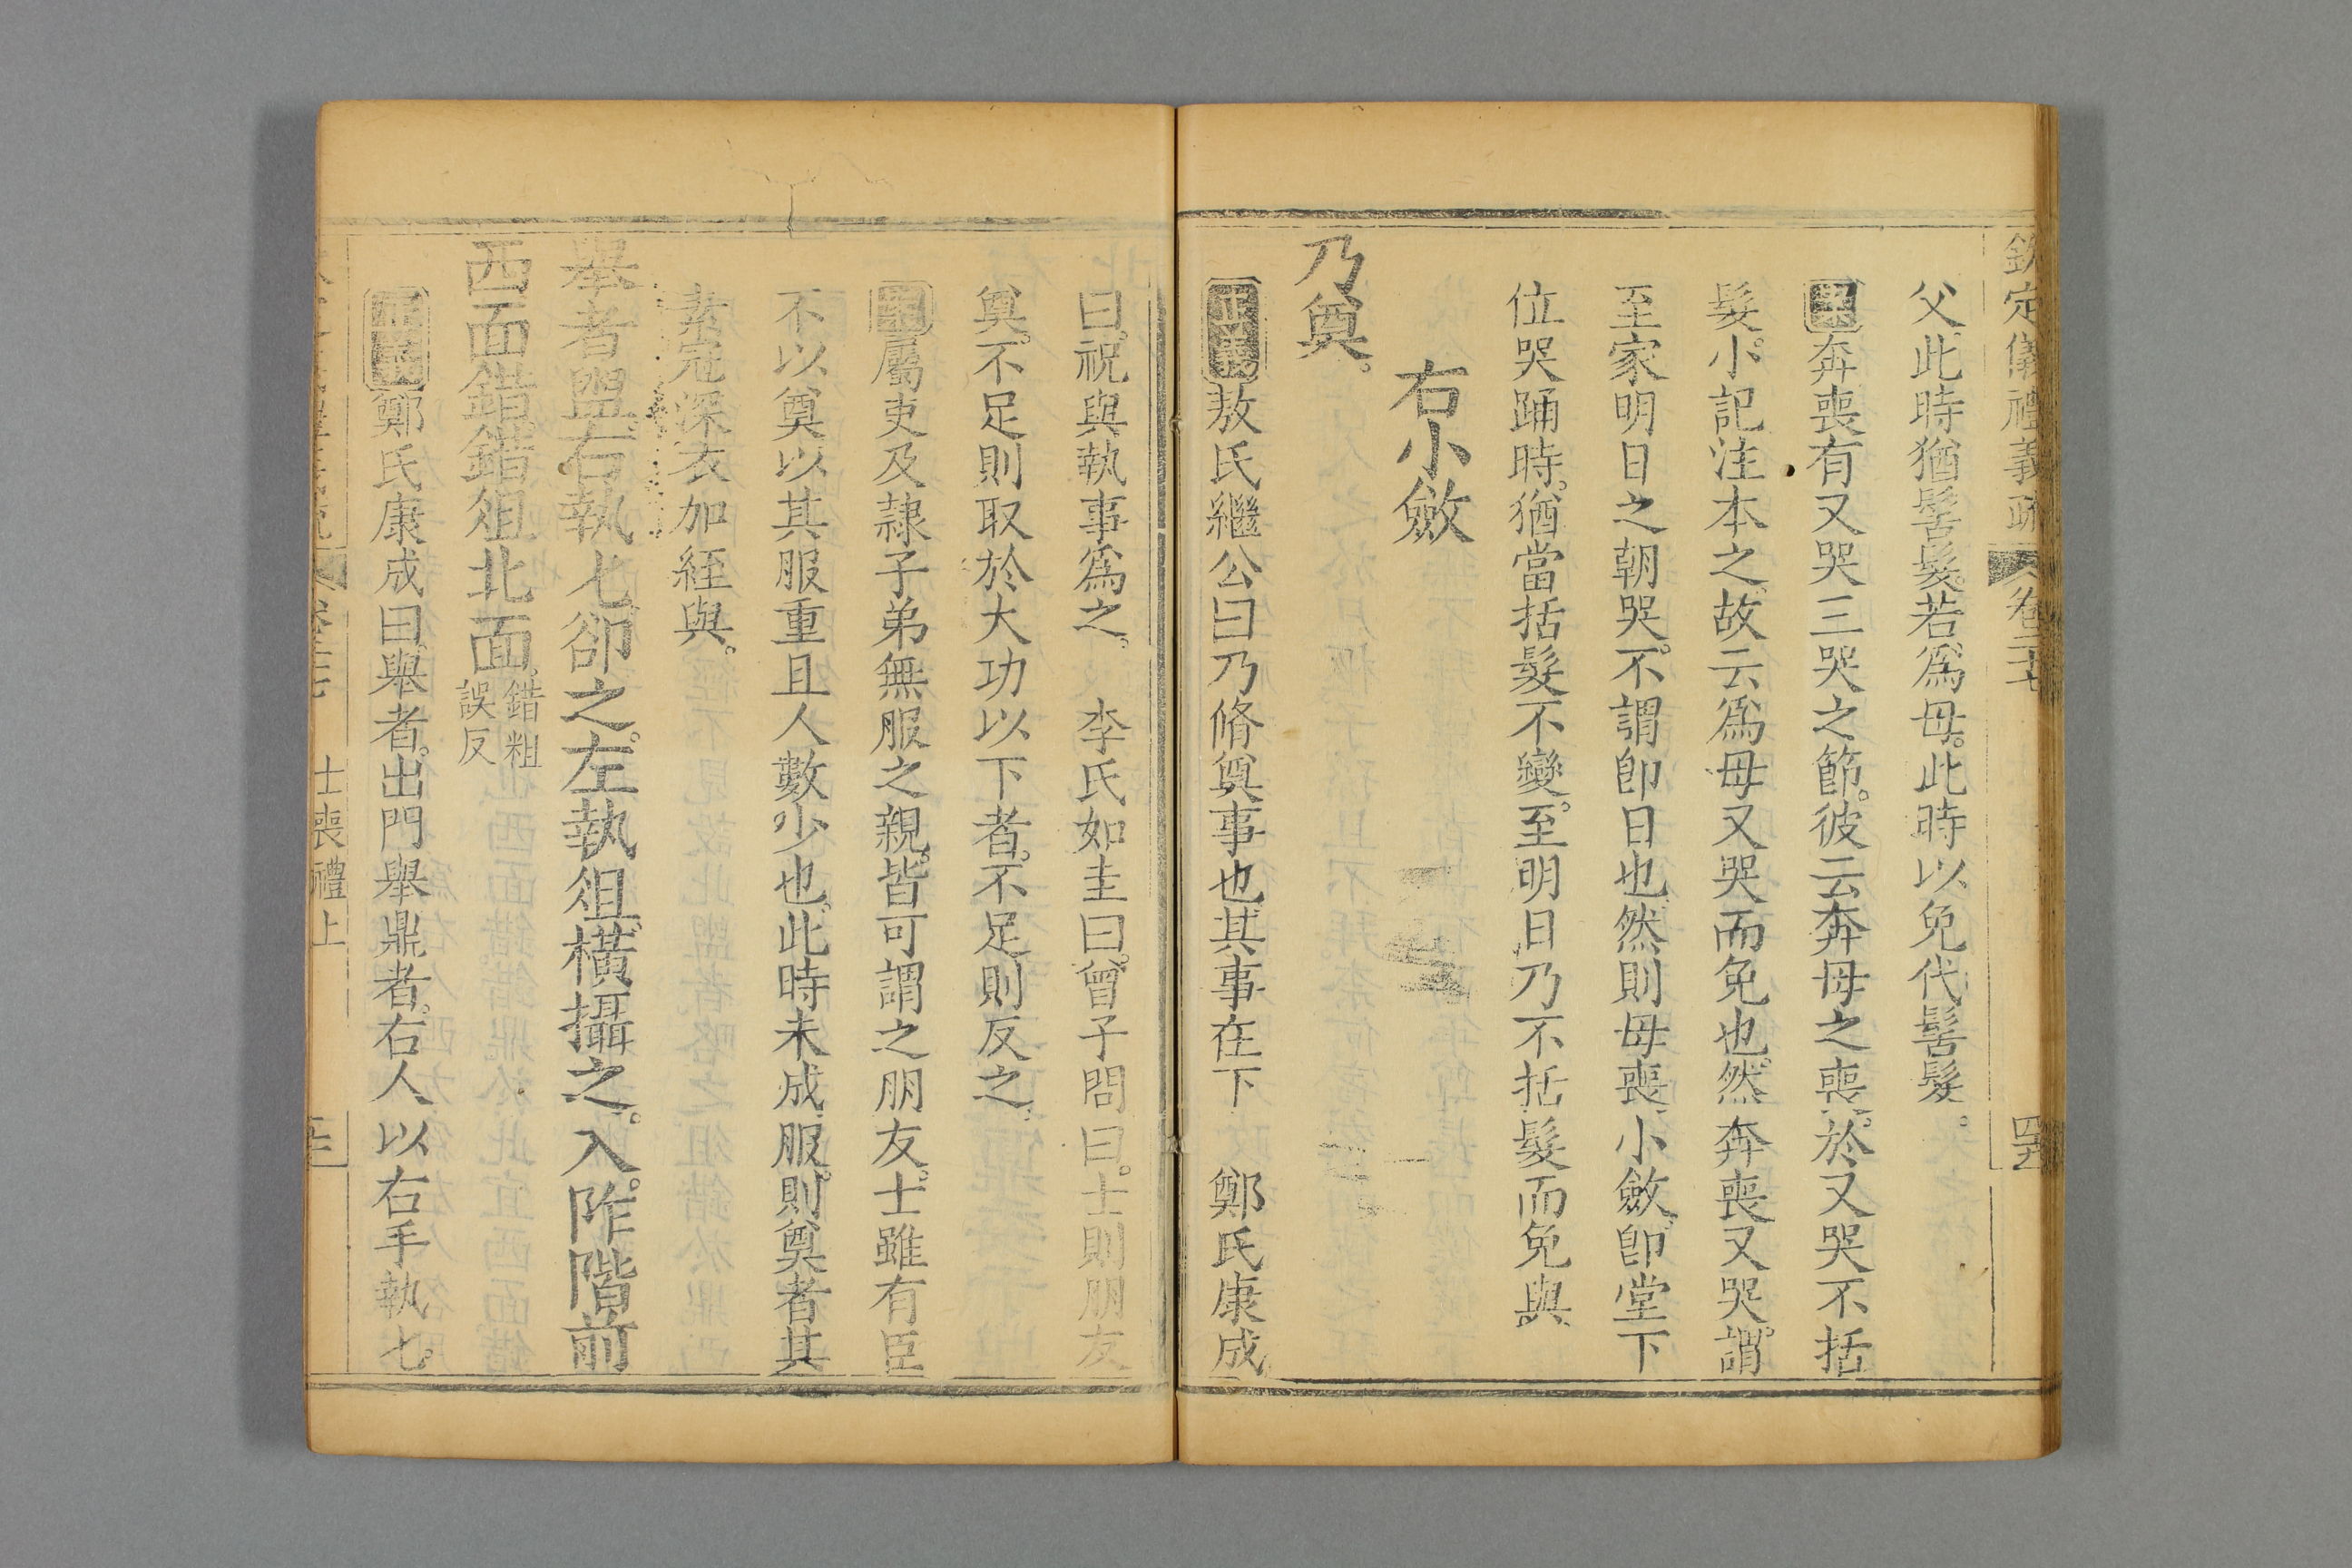 欽定儀禮義疏 卷二十七 四十五
父此時猶髺髮若爲母。此時以免代髺髮。
案奔喪有又哭三哭之節。彼云奔母之喪。於又哭不括
髮。小記注本之。故云爲母又哭而免也。然奔喪又哭。謂
至家明日之朝哭。不謂卽日也。然則母喪小斂。卽堂下
位哭踊時。猶當括髮不變。至明日乃不括髮而免與。
右小斂
乃奠。
正義敖氏繼公曰乃脩奠事也。其事在下 鄭氏康成
曰。祝與執事爲之。 李氏如圭曰。曾子問曰。士則朋友
奠。不足則取於大功以下者。不足則反之。
案屬吏及隷子弟無服之親。皆可謂之朋友。士雖有臣
不以奠以其服重且人數少也。此時未成服。則奠者其
素冠深衣加絰與。
舉者盥。右執匕。卻之。左執俎。橫攝之。入。阼階前
西面錯。錯俎北面。錯粗誤反
正義鄭氏康成曰。舉者。出門舉鼎者。右人以右手執匕。
士喪禮上